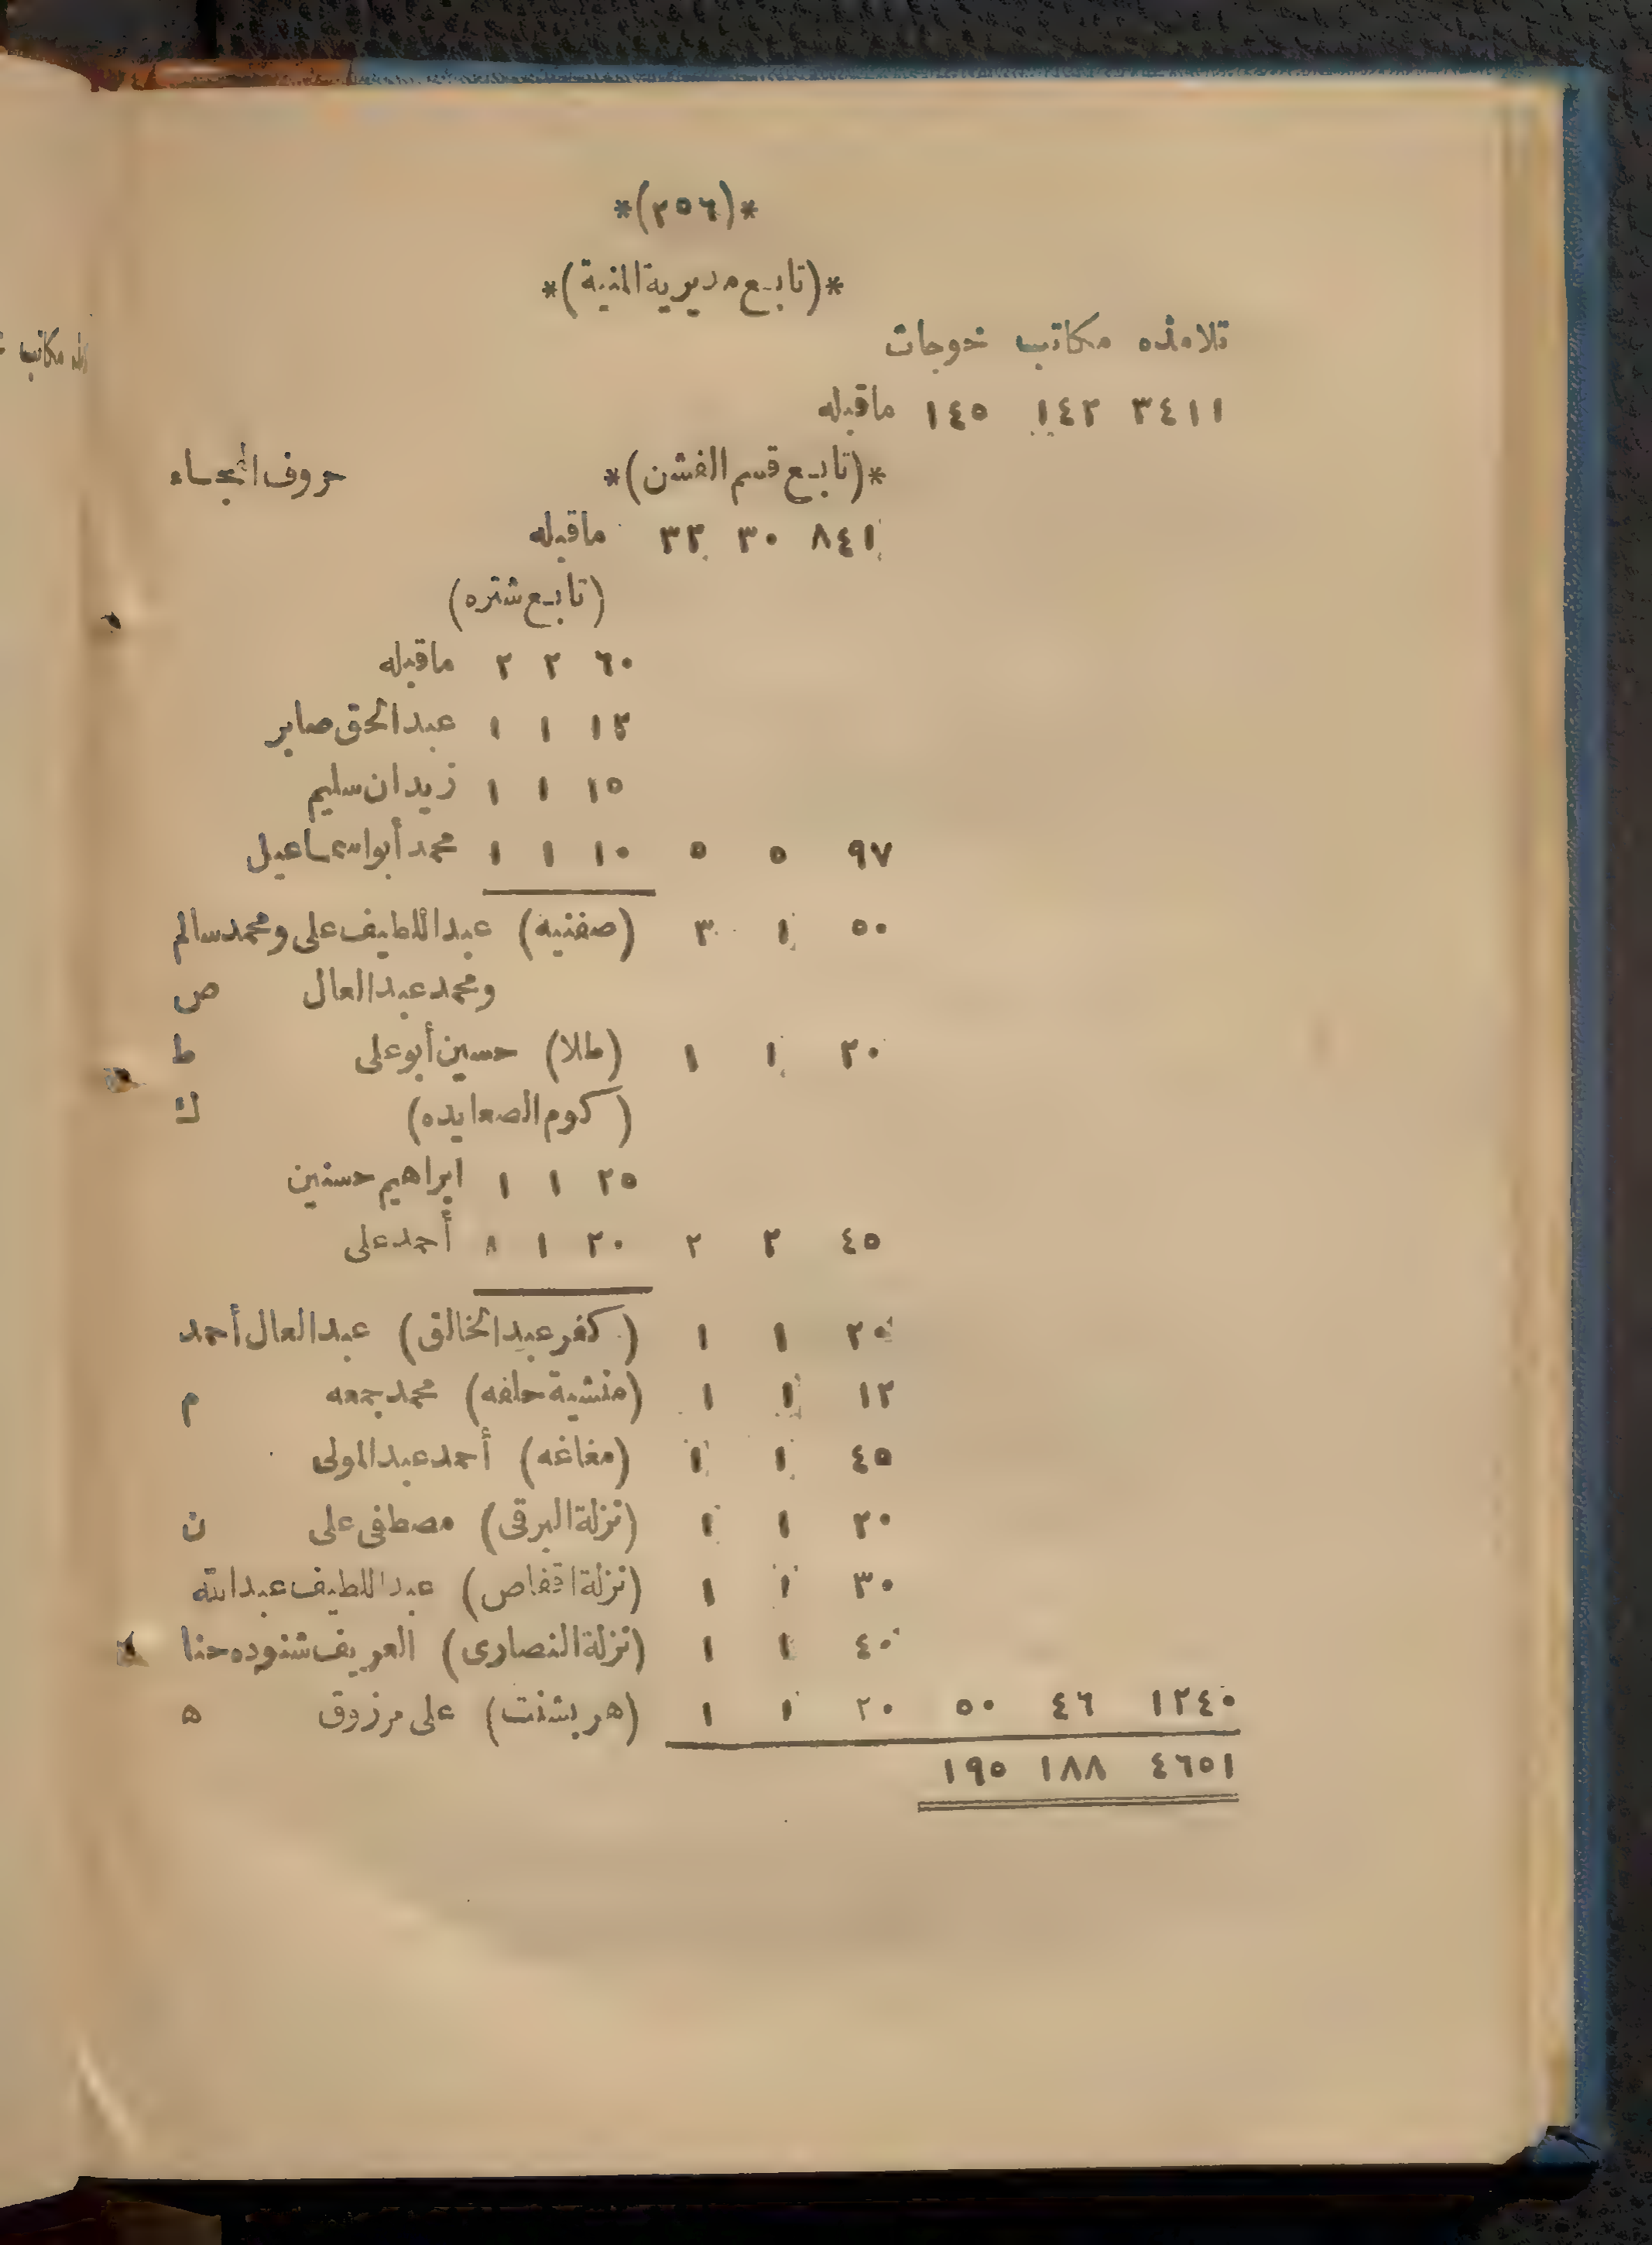 *(٢٥٦)*
*(تابع مديرية المنية)*
تلامذه مكاتب خوجات
٣٤١١ ١٤٢ ١٤٥ ماقبله
*(تابع قسم الفشن)* حروف الهجاء
٨٤١ ٣٠ ٣٢ ماقبله
(تابع شتره)
٦٠ ٢ ٢ ماقبله
١٢ ١ ١ عبدالحق صابر
١٥ ١ ١ زيدان سليم
٩٧ ٥ ٥ ١٠ ١ ١ محمد أبواسماعيل
٥٠ ١ ٣ (صفنيه) عبداللطيف على ومحمد سالم
ومحمد عبدالعال ص
٢٠ ١ ١ (طلا) حسين أبوعلى ط
(كوم الصعايده) ك
٢٥ ١ ١ ابراهيم حسنين
٤٥ ٢ ٢ ٢٠ ١ ١ أحمد على
٢٠ ١ ١ (كفر عبدالخالق) عبدالعال أحمد
١٢ ١ ١ (منشية حلفه) محمد جمعه م
٤٥ ١ ١ (مغاغه) أحمد عبدالمولى
٢٠ ١ ١ (نزلة البرقى) مصطفى على ن
٣٠ ١ ١ (نزلة اقفاص) عبداللطيف عبدالله
٤٠ ١ ١ (نزلة النصارى) العريف شنوده حنا
١٢٤٠ ٤٦ ٥٠ ٢٠ ١ ١ (هربشنت) على مرزوق ه
٤٦٥١ ١٨٨ ١٩٥
مكاتب